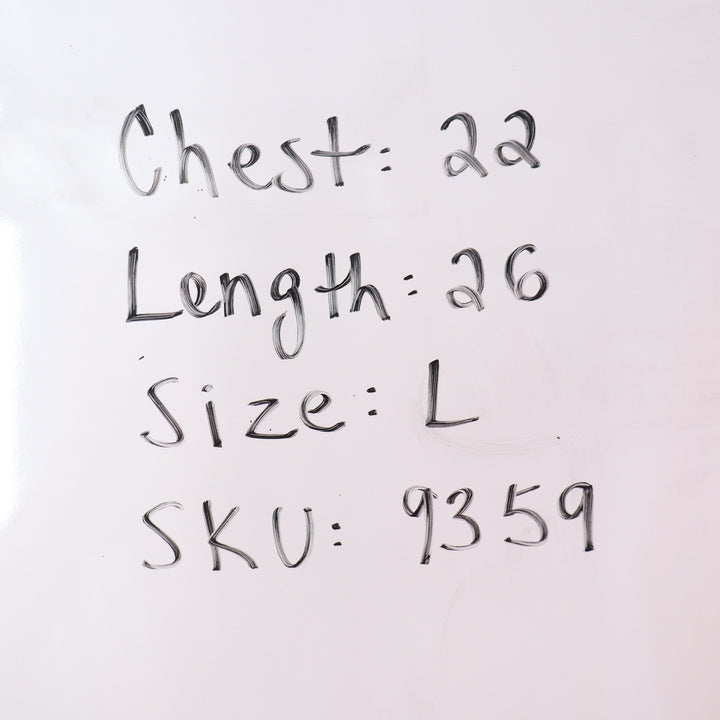 Chest: 22
Length: 26
Size: L
SKU: 9359